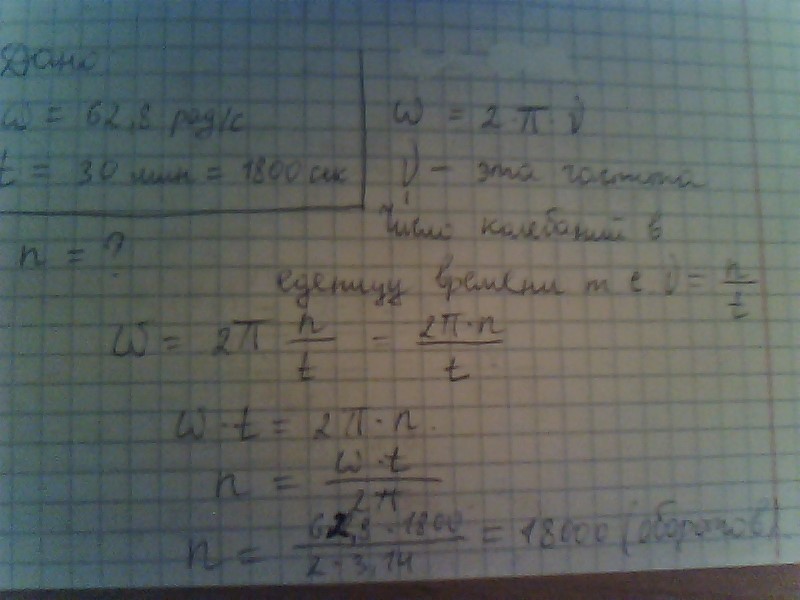 Дано
ω = 62,8 рад/с
t = 30 мин = 1800 сек
n = ?
ω = 2·π·ν
ν – эта частота
число колебаний в
еденицу времени т е ν = n/t
ω = 2π n/t = 2π·n/t
ω·t = 2π·n.
n = ω·t/2π
n = 62,8·1800/2·3,14 = 18000 (оборотов)